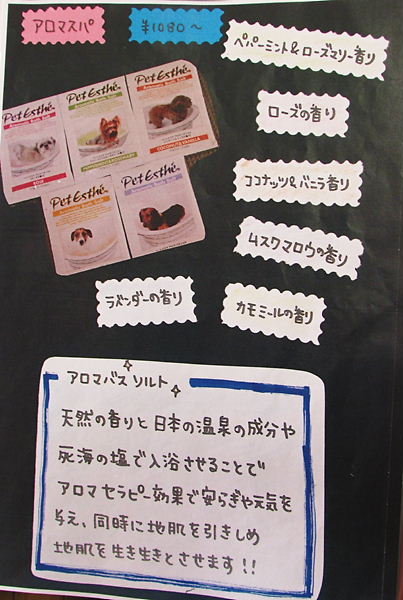 アロマスパ
¥1080〜
ペパーミント&ローズマリー香り
ローズの香り
ココナッツ&バニラ香り
ムスクマロウの香り
ラベンダーの香り
カモミールの香り
Pet Esthé
Pet Esthé
Pet Esthé
Pet Esthé
Pet Esthé
アロマバス ソルト
天然の香りと日本の温泉の成分や
死海の塩で入浴させることで
アロマセラピー効果で安らぎや元気を
与え、同時に地肌を引きしめ
地肌を生き生きとさせます!!